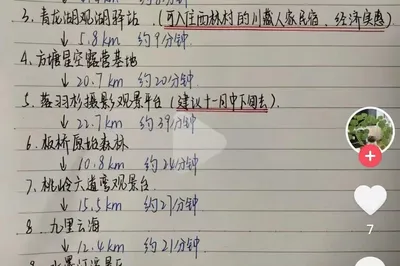 3. 青龙湖观湖驿站 (可入住西林村的川藏人家民宿,经济实惠)
↓ 5.8km 约9分钟
4. 方塘星空露营基地
↓ 20.7km 约20分钟
5. 落羽杉摄影观景平台 (建议十一月中下旬去).
↓ 22.7km 约39分钟
6. 板桥原始森林
↓ 10.8km 约24分钟
7. 桃岭六道湾观景台
↓ 15.5km 约27分钟
8. 九里云海
↓ 12.4km 约21分钟
7